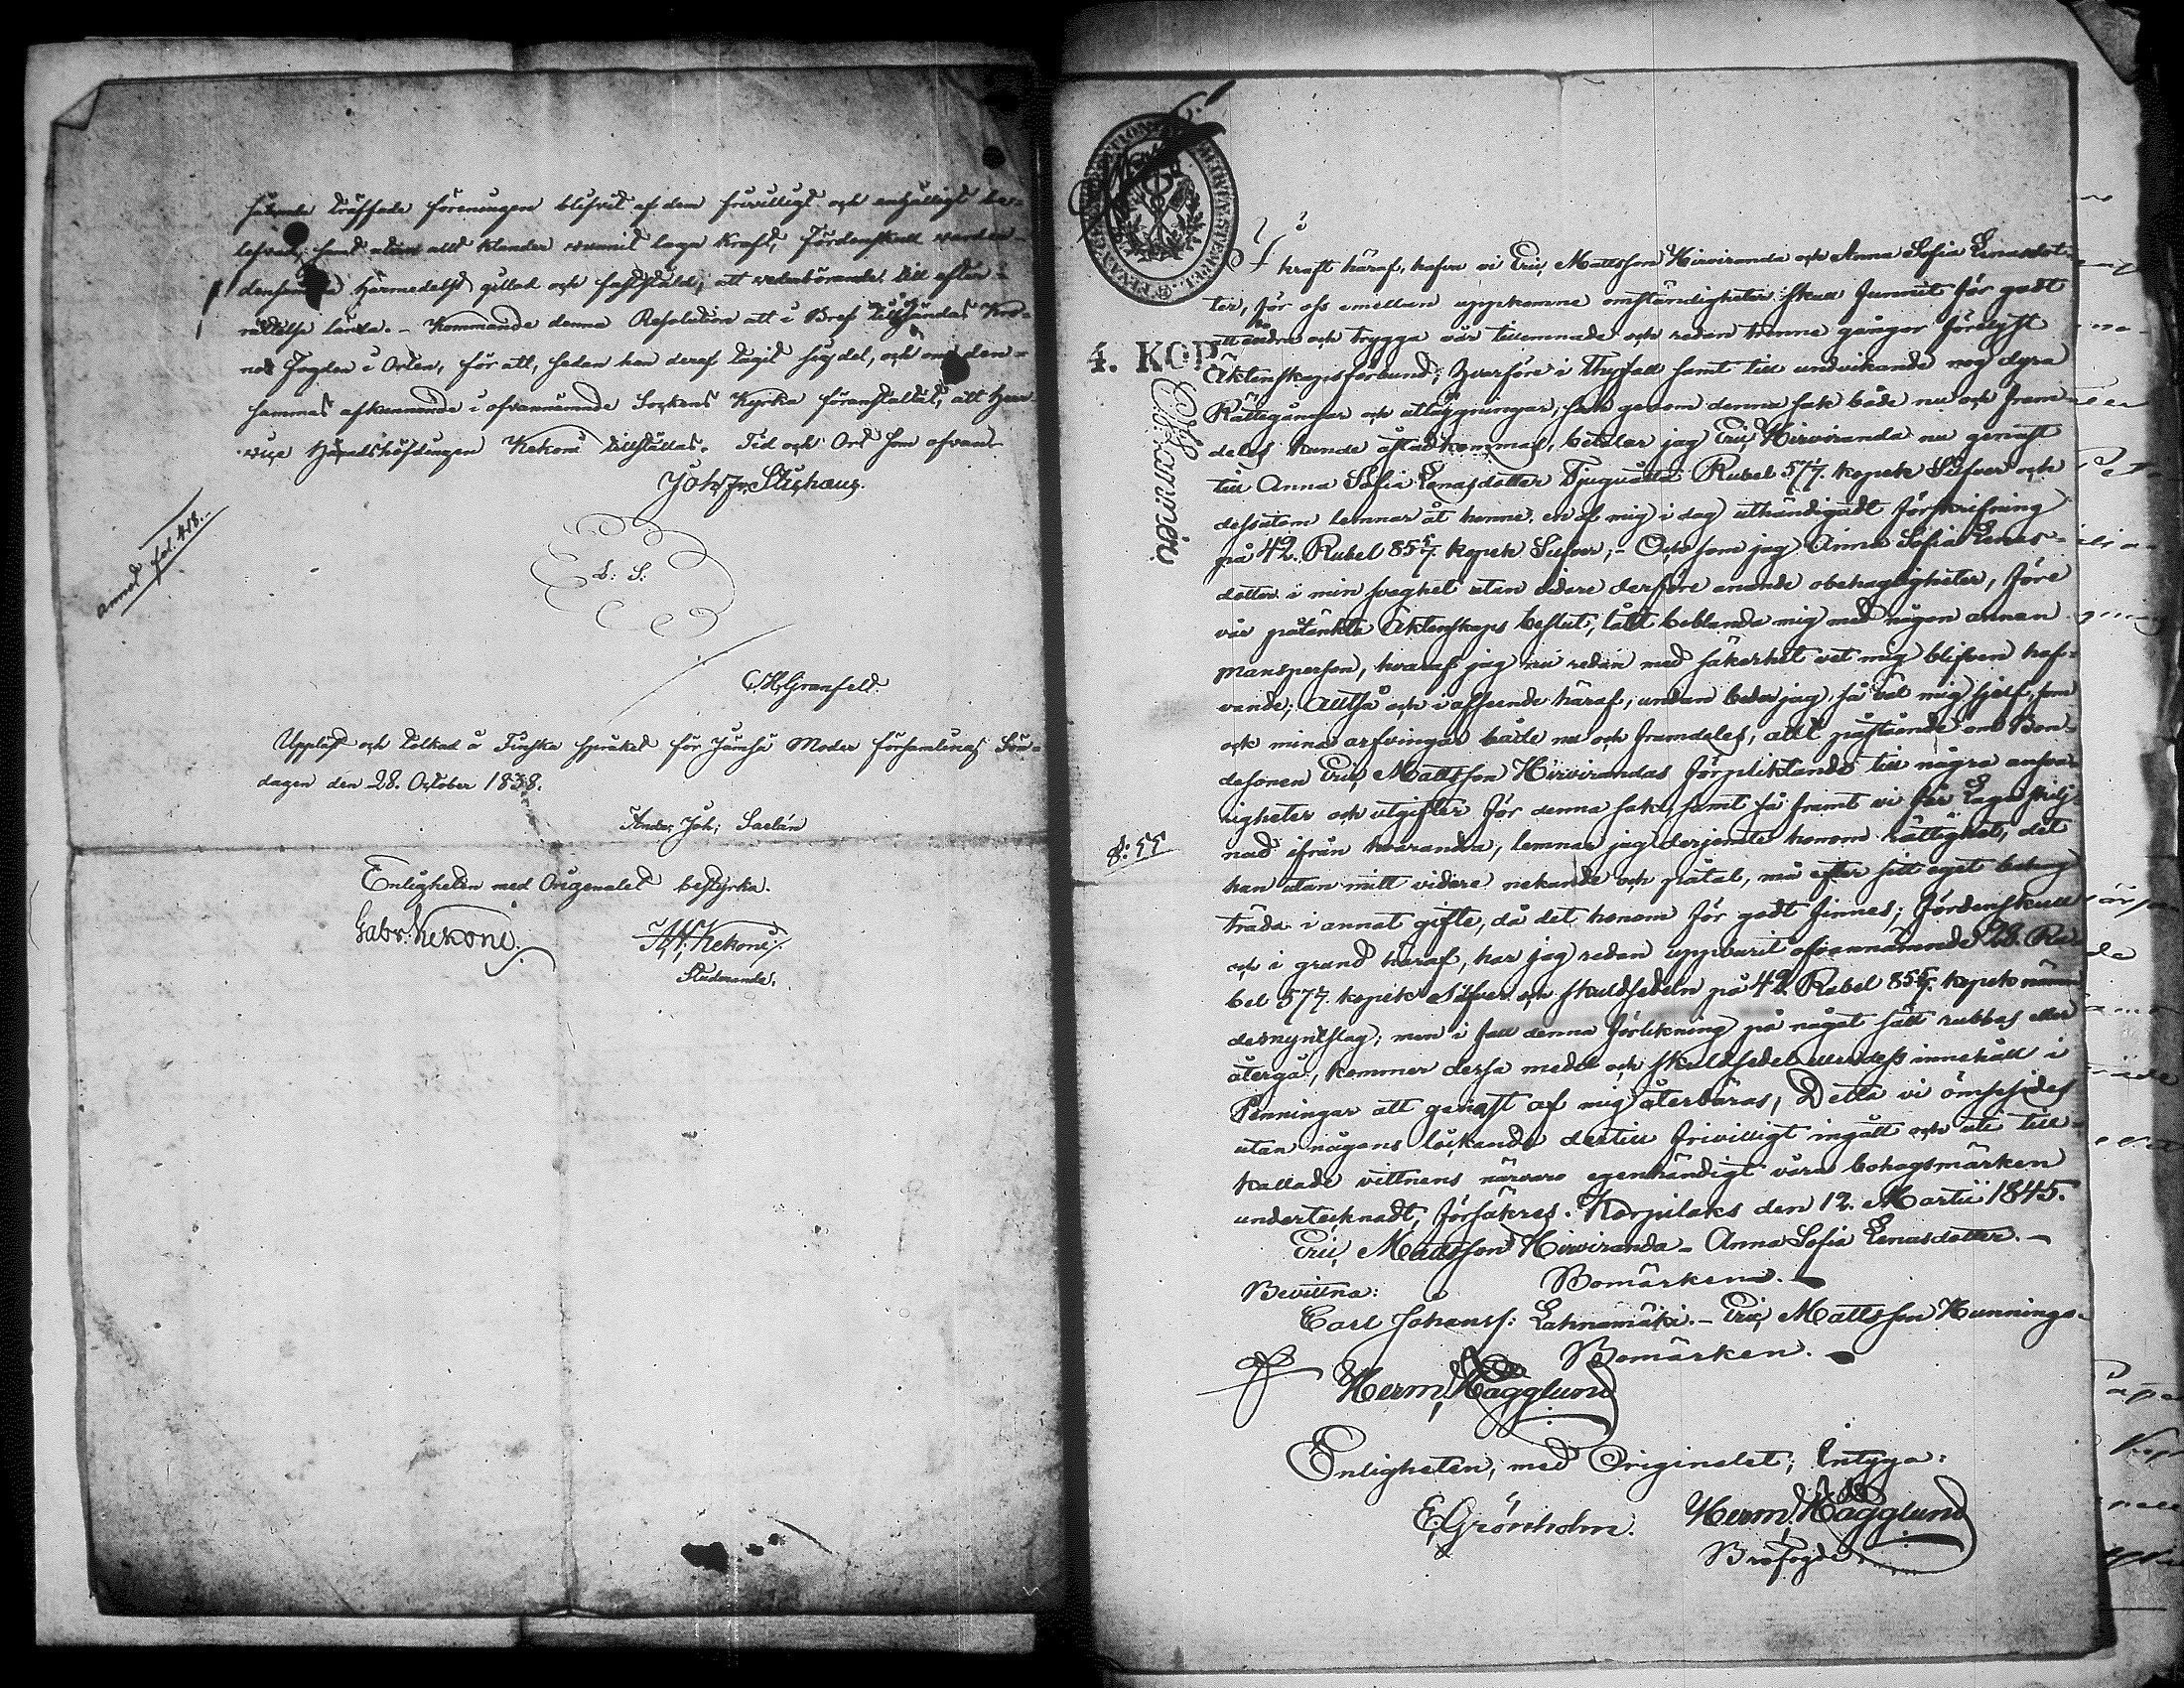 träffade föreningen blifvit af dem frivilligt och enhälligt be-
lefvad, samt utan allt klander vunnit laga kraft, fördenskull varder
densamma härmedelst gillad och fastställd, att vederbörande till efter-
rättelse lända. - Kommande denna Resolution att i Bref tillsändas Kro-
no Fogden i Orten, för att, sedan han deraf tagit del, och om den-
sammas afkunnande i ofvannämnde Sockens Kyrka föranstaltat, att Herr
Häradshöfdingen Kekoni tillställas. Tid och Ort som ofvan.
Joh. Fr. Stichæus.
annot fol. 418.
L: S:
Granfeld.
Uppläst och tolkad å Finska språket för Jämsä Moder församlings Sön-
dagen den 28. October 1838.
Ander Joh; Saelan
Enligheten med Originalet bestyrka.
Gabr: Kekoni. Kekoni.
Studerande.
I kraft häraf, hafva vi Eric Mattsson Hirviranda och Anna Sofia Enasdot-
ter, för oss emellan uppkomne omständigheter skull funnit för godt
att ändra och trygga vår tillemnade och redan trenne gångor förelyst
4. KOP. Äktenskapsförbund; hvarföre i Thyfall samt till undvikande nog dyra
Rättegångar och utläggningar, som genom denna sak både nu och fram-
deles kunde åstadkommas, betalar jag Eric Hirviranda nu genast
till Anna Sofia Enasdotter Tjuguåtta Rubel 57 1/7. kopek Silfver och
dessutom lemnar åt henne, en af mig i dag uthändigadt förskrifning
på 42. Rubel 85 5/7. kopek Silfver; - Och som jag Anna Sofia Enas-
dotter i min svaghet utan vidare derföre anande obehagligheter, före
vår påtänkta Äktenskaps beslut, låtit beblanda mig med någon annan
mansperson, hvaraf jag nu redan med säkerhet vet mig blifven haf-
vande; Alltså och i afseende häraf, undan beder jag, så väl mig sjelf, som
ock mina arfvingar både nu och framdeles, allt påstående om Bon-
desonen Eric Mattsson Hirvirandas förpliktande till några ansvar-
igheter och utgifter för denna sak, samt så framt vi får Laga skilj-
8: 55
nad ifrån hvarandra, lemnar jag derjemte honom rättighet, det
han utan mitt vidare nekande och påtal, må efter sitt eget behag
träda i annat gifte, då det honom för godt finnes; fördenskull
och i grund häraf, har jag redan uppburit ofvannämnde 28. Ru-
bel 57 1/7. kopek Silfver och skuldsedeln på 42. Rubel 85 5/7. kopek nämn-
de myntslag; men i fall denna förlikning på något sätt rubbas eller
återgå, kommer dessa medel och skuldsedel eller dess innehåll i
Penningar att genast af mig återbäras, Detta vi ömsesides
utan någons lockande dertill frivilligt ingått och uti till-
kallade vittnens närvaro egenhändigt våra bohagsmärken
undertecknadt, försäkres. Korpilaks den 12. Martii 1845.
Eric Mattsson Hirviranda - Anna Sofia Enasdotter. -
Bevittna: Bomärken. -
Carl Johanss: Lahnamäki. - Eric Mattsson Hunninga-
Bomärken. -
Herm. Hägglund
Enligheten, med Originalet; Intyga:
E. Grönholm. Herm. Hägglund
Brofogde.